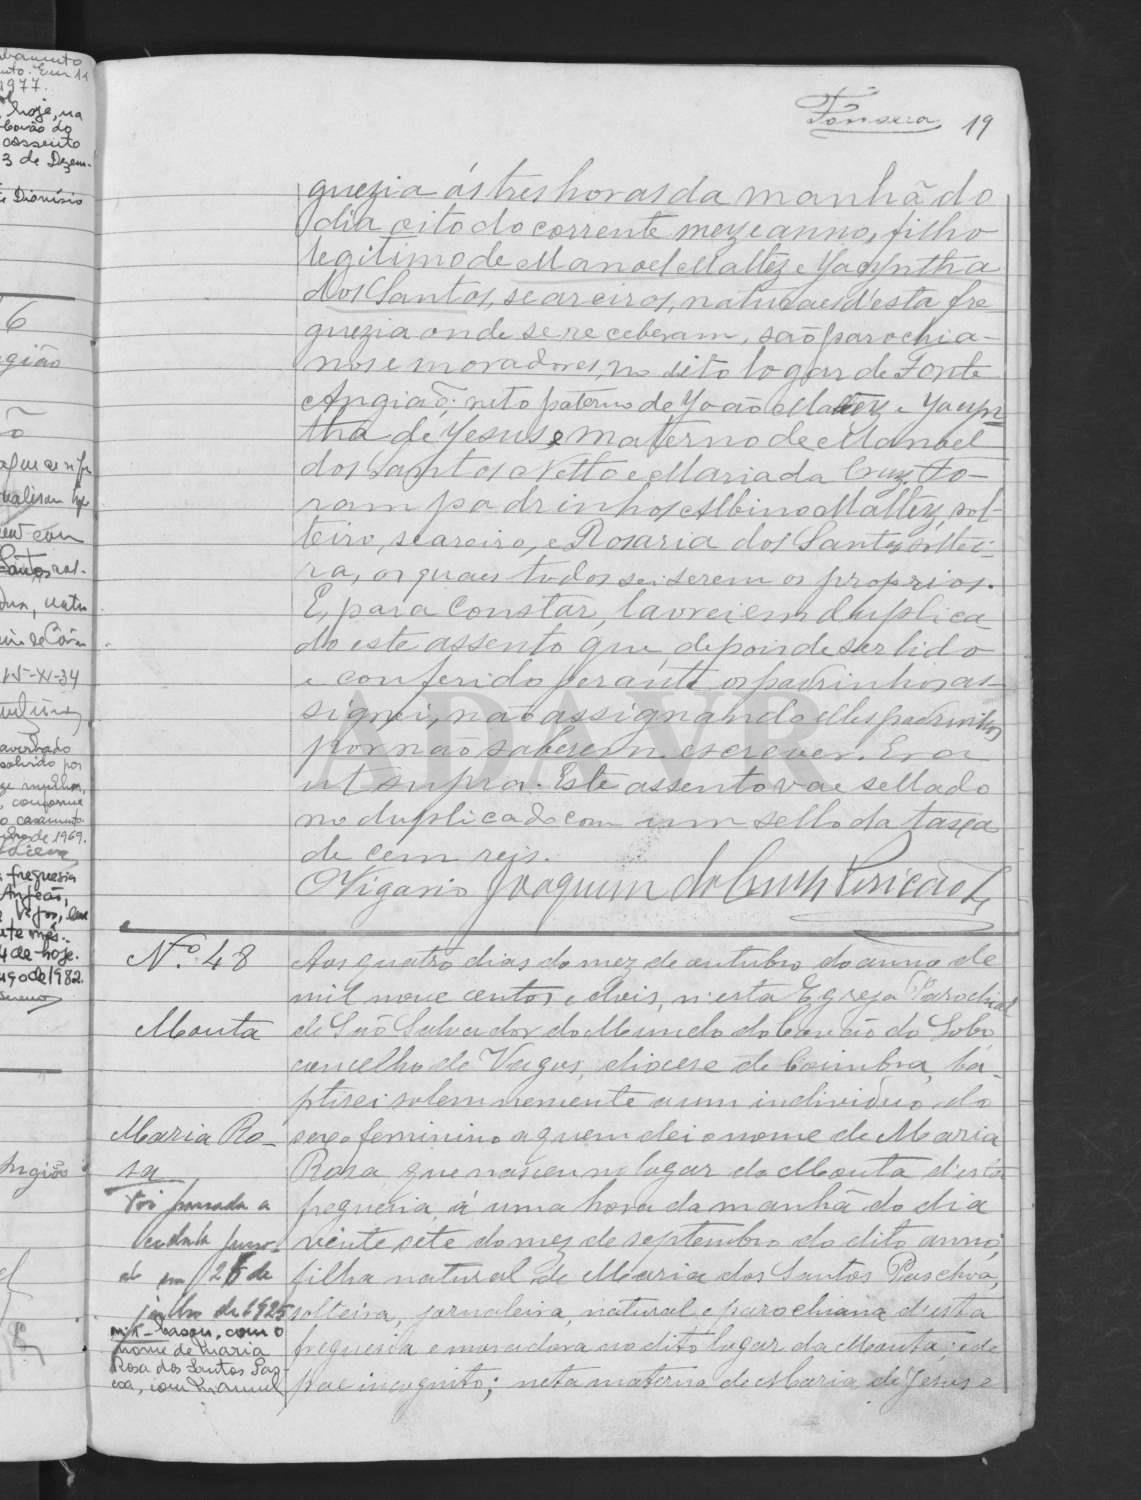 Fonseca 19
guezia ás tres horas da manhã do
dia oito do corrente mez e anno, filho
legitimo de Manoel Maltez e Jacyntha
dos Santos, seareiros, naturaes d'esta fre
guezia onde se receberam, são parochia-
nos e moradores no dito logar de Fonte
Angião; neto paterno de João Maltez e Jacyn
tha de Jesus, e materno de Manoel
dos Santos Netto e Maria da Cruz. Fo-
ram padrinhos Albino Maltez, sol-
teiro, seareiro, e Rosaria dos Santos, soltei-
ra, os quaes todos sei serem os proprios.
E, para constar, lavrei em duplica
do este assento que, depois de ser lido
e conferido perante os padrinhos as-
signei, não assignando elles padrinhos
por não saberem escrever. Era
ut supra. Este assento vae sellado
no duplicado com um sello da taxa
de cem reis.
O Vigario Joaquim
Nº. 48
Mouta
Maria Ro-
sa
Foi passada a
em 25 de
julho de 1925
Casou, com o
nome de Maria
Rosa dos Santos Pas-
coa, com Manuel
Aos quatro dias do mez de outubro do anno de
mil nove centos e dois, n'esta Egreja Parochial
de São Salvador do Mundo do Covão do Lobo,
concelho de Vagos, diocese de Coimbra, ba-
ptisei solemnemente a um individuo do
sexo feminino a quem dei o nome de Maria
Rosa que nasceu no lugar da Mouta d'esta
freguesia á uma hora da manhã do dia
vinte sete do mez de septembro do dito anno,
filha natural de Maria dos Santos Paschoa,
solteira, jornaleira, natural e parochiana d'esta
freguesia e moradora no dito lugar da Mouta, e de
pae incognito; neta materna de Maria de Jesus e
ADAVR
hoje, na
assento
3 de Dezem-
Dionisio
6
Santos
15-XI-34
averbado
conforme
o casamento
de 1969.
freguesia
Angeão,
4 de hoje.
de 1982.
Angião